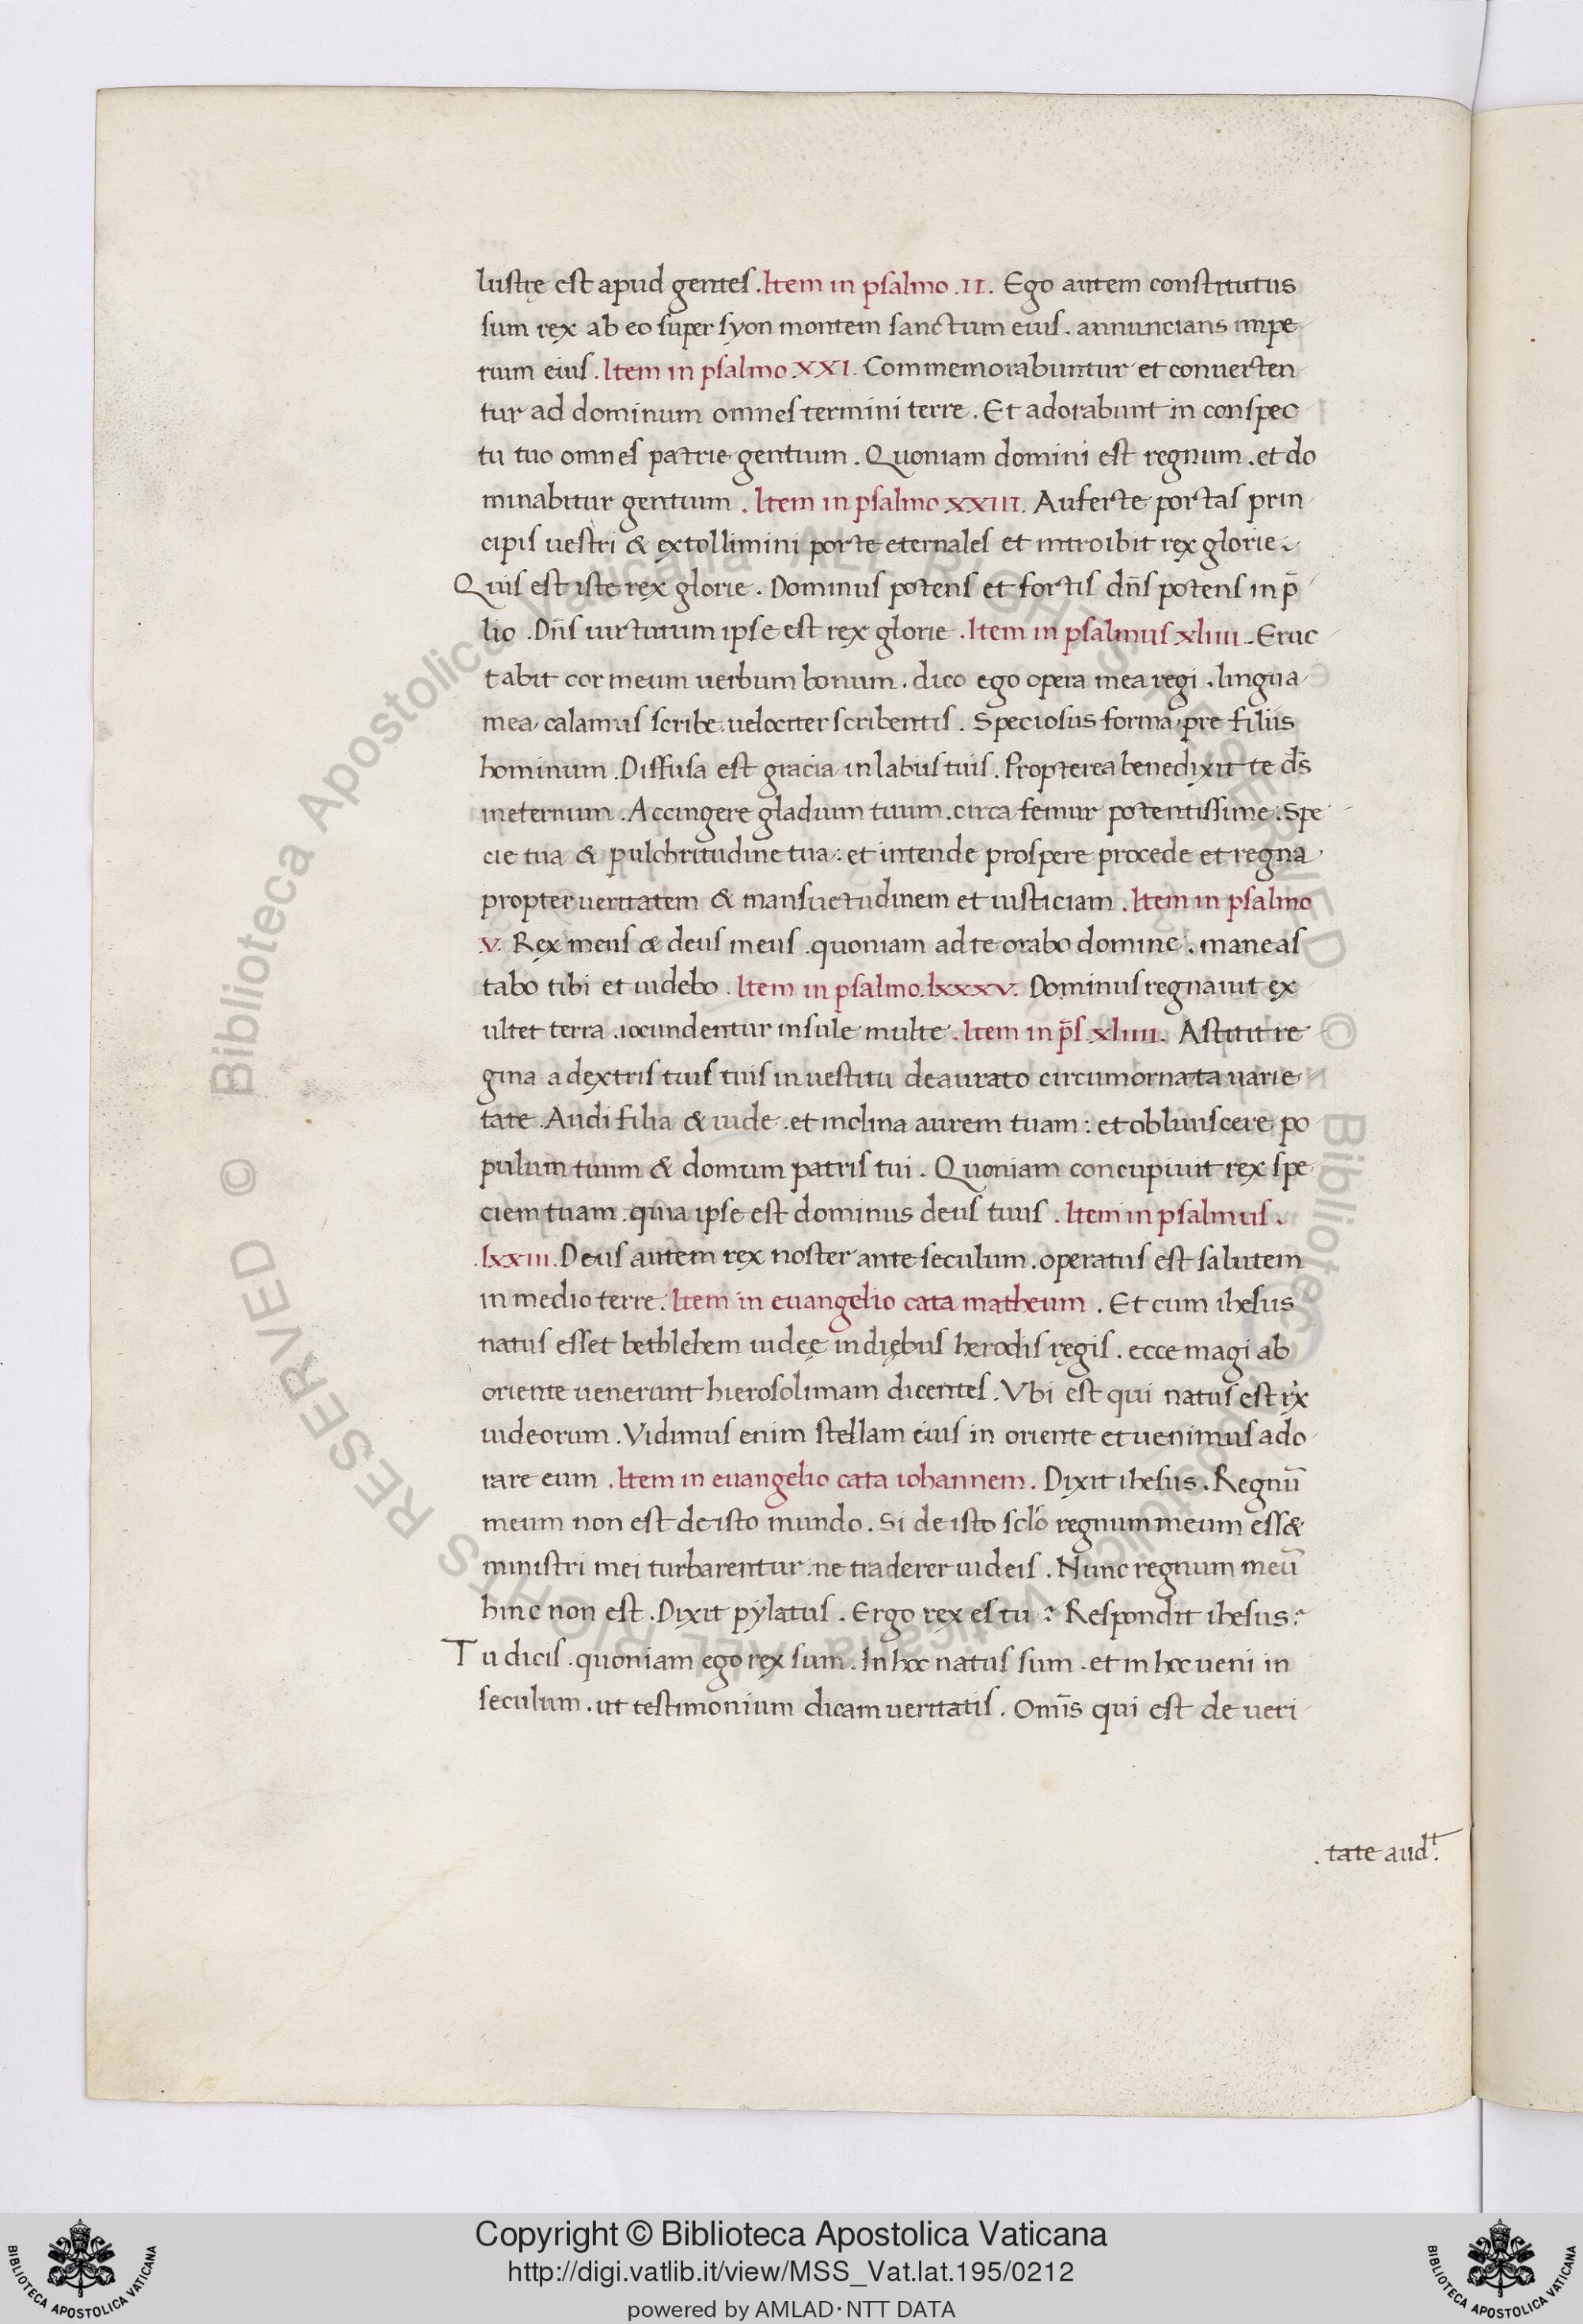 lustrę est apud gentes .Item in psalmo .II. Ego autem constitutus
sum rex ab eo super syon montem sanctum eius . annuncians impe
rium eius . Item in psalmo XXI. Commemorabuntur et conuerten
tur ad dominum omnes termini terre . Et adorabunt in conspec
tu tuo omnes patrie gentium . Quoniam domini est regnum . et do
minabitur gentium . Item in psalmo XXIII. Auferte portas prin
cipis uestri & extollimini porte eternales et introibit rex glorie .
Quis est iste rex glorie . Dominus potens et fortis dn̄s potens in p̄
lio . Dn̄s uirtutum ipse est rex glorie . Item in psalmus xliiii . Eruc
tabit cor meum uerbum bonum . dico ego opera mea regi . lingua
mea calamus scribe uelociter scribentis . Speciosus forma pre filiis
hominum . Diffusa est gracia in labiis tuis . Propterea benedixit te ds̄
in eternum . Accingere gladium tuum . circa femur potentissime . Spe
cie tua & pulchritudine tua : et intende prospere procede et regna
propter ueritatem & mansuetudinem et iusticiam . Item in psalmo
v. Rex meus & deus meus . quoniam ad te orabo domine . mane as
tabo tibi et uidebo . Item in psalmo . lxxxv. Dominus regnauit ex
ultet terra . iocundentur insule multe . Item in p̄s . xliiii. Astitit re
gina a dextris tuis tuis in uestitu deaurato circumornata uarie
tate . Audi filia & uide . et inclina aurem tuam : et obliuiscere po
pulum tuum & domum patris tui . Quoniam concupiuit rex spe
ciem tuam . quia ipse est dominus deus tuus . Item in psalmus .
. lxxiii . Deus autem rex noster ante seculum . operatus est salutem
in medio terre . Item in euangelio cata matheum . Et cum ihesus
natus esset bethlehem iudeę in diębus herodis ręgis . ecce magi ab
oriente uenerunt hierosolimam dicentes . Vbi est qui natus est rx
iudeorum . Vidimus enim stellam eius in oriente et uenimus ado
rare eum . Item in euangelio cata iohannem . Dixit ihesus . Regnū
meum non est de isto mundo . Si de isto sclo regnum meum ess&
ministri mei turbarentur . ne traderer iudeis . Nunc regnum meū
hinc non est . Dixit pylatus . Ergo rex es tu ? Respondit ihesus :
Tu dicis . quoniam ego rex sum . In hoc natus sum . et in hoc ueni in
seculum . ut testimonium dicam ueritatis . Omīs qui est de ueri
. tate aud^t.
© Biblioteca Apostolica Vaticana ALL RIGHTS RESERVED © Biblioteca Apostolica Vaticana ALL RIGHTS RESERVED
Copyright © Biblioteca Apostolica Vaticana
http://digi.vatlib.it/view/MSS_Vat.lat.195/0212
powered by AMLAD·NTT DATA
BIBLIOTECA APOSTOLICA VATICANA
BIBLIOTECA APOSTOLICA VATICANA